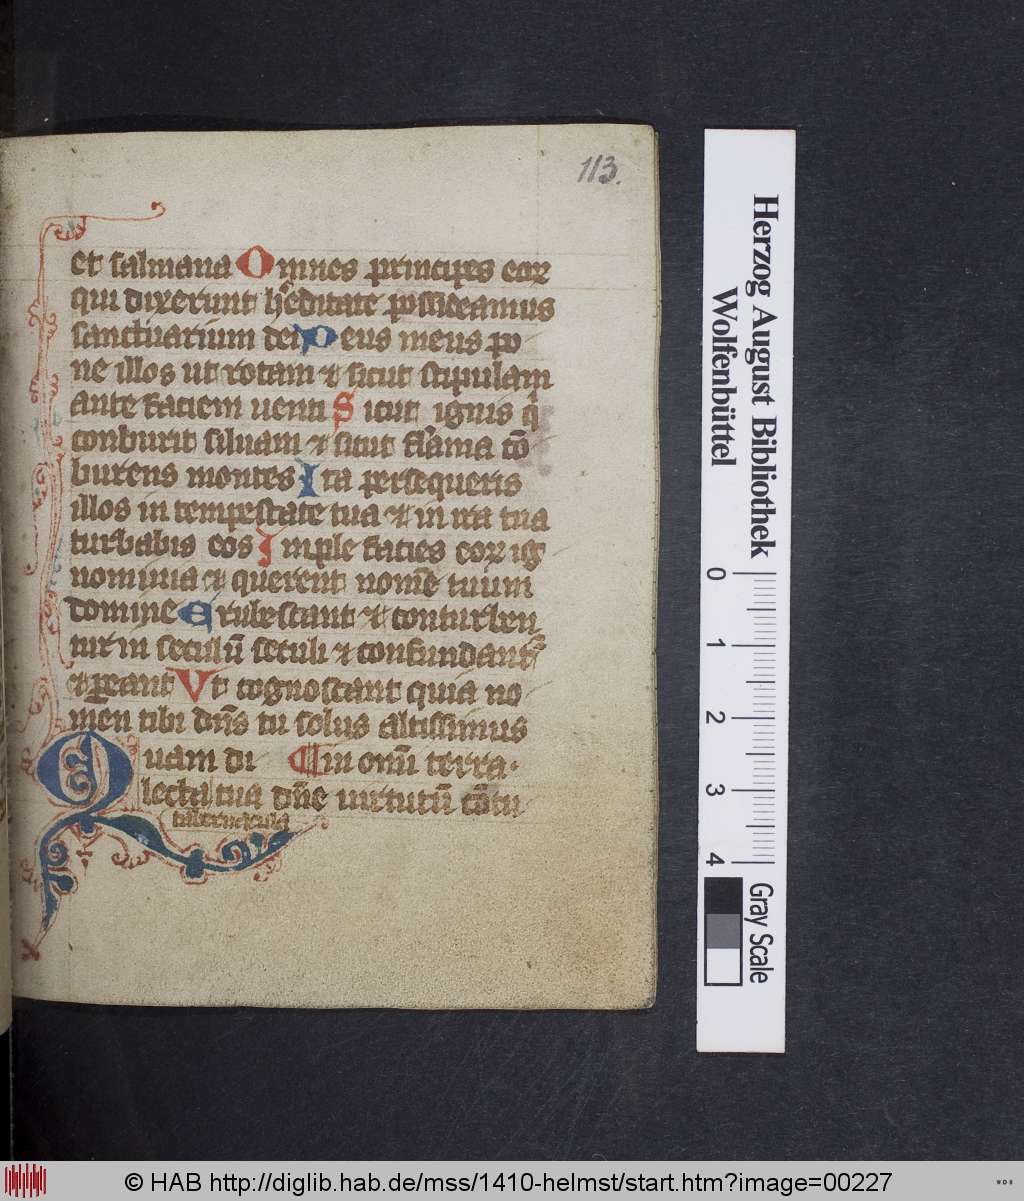 113.
et salmana Omnes principes eoꝝ
qui dixerunt h̾editate possideamus
sanctuarium dei Deus meus po
ne illos ut rotam ⁊ sicut stipulam
ante faciem uenti Sicut ignis q̇
conburit siluam ⁊ sicut fla̅ma co̅
burens montes Ita persequeris
illos in tempestate tua ⁊ in ira tua
turbabis eos Imple facies eoꝝ ig
nominia ⁊ querent nom̅e tuum
domine Erubescant ⁊ conturben
tur in seculu̅ seculi ⁊ confundant᷑
⁊ ꝑeant Vt cognoscant quia no
men tibi dn̅s tu solus altissimus
Quam di in om̅i terra.
lecta tua dn̅e uirtutu̅ co̅cu
tabernacula
Herzog August Bibliothek
Wolfenbüttel
0
1
2
3
4
Gray Scale
© HAB http://diglib.hab.de/mss/1410-helmst/start.htm?image=00227